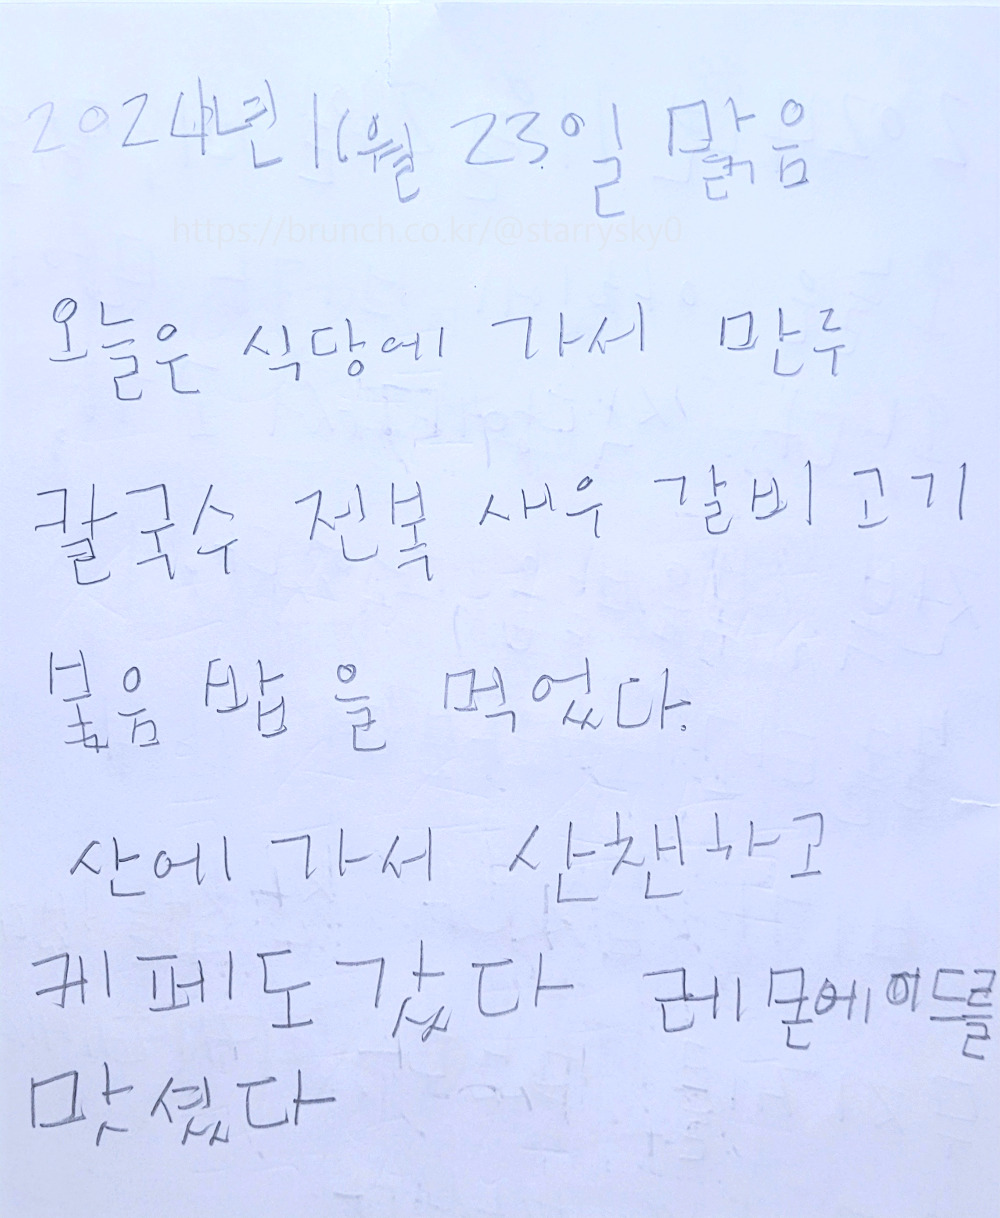 2024년 11월 23일 맑음
https://brunch.co.kr/@starrysky0
오늘은 식당에 가서 만두
칼국수 전복 새우 갈비 고기
볶음 밥을 먹었다.
산에 가서 산챈하고
케페도 갔다 레몬에이드를
맛셨다